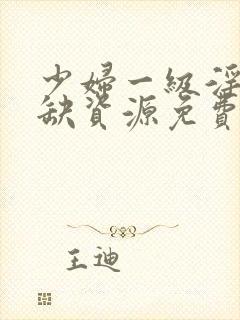 少婦一級淫
缺資源免費
王迪